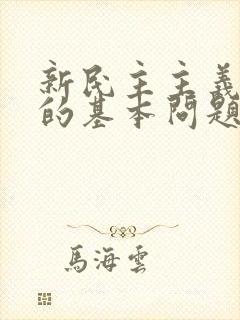 新民主主義
的基本問題
馬海雲